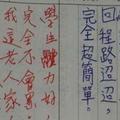 回程路迢迢，
完全超簡單。
學生體力好，
完全不會累
我這老人家